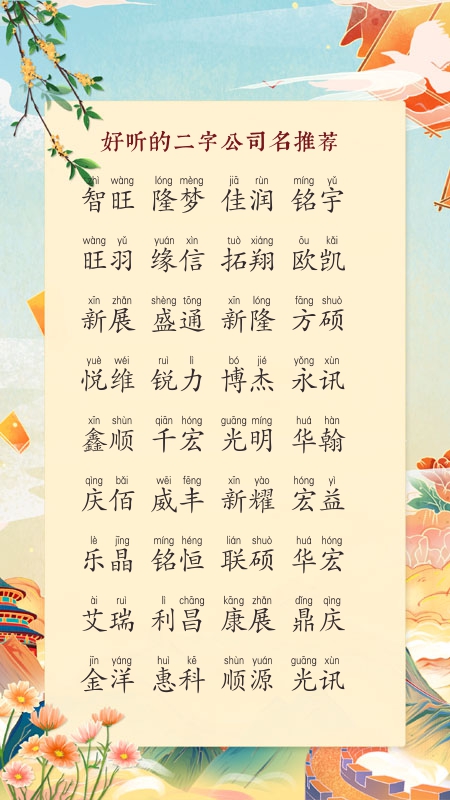 好听的二字公司名推荐
zhì wàng lóng mèng jiā rùn míng yǔ
智旺 隆梦 佳润 铭宇
wàng yǔ yuán xìn tuò xiáng ōu kǎi
旺羽 缘信 拓翔 欧凯
xīn zhǎn shèng tōng xīn lóng fāng shuò
新展 盛通 新隆 方硕
yuè wéi ruì lì bó jié yǒng xùn
悦维 锐力 博杰 永讯
xīn shùn qiān hóng guāng míng huá hàn
鑫顺 千宏 光明 华翰
qìng bǎi wēi fēng xīn yào hóng yì
庆佰 威丰 新耀 宏益
lè jīng míng héng lián shuò huá hóng
乐晶 铭恒 联硕 华宏
ài ruì lì chāng kāng zhǎn dǐng qìng
艾瑞 利昌 康展 鼎庆
jīn yáng huì kē shùn yuán guāng xùn
金洋 惠科 顺源 光讯